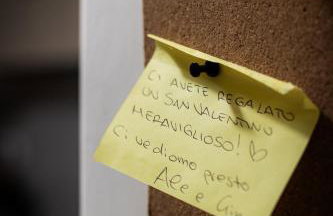 CI AVETE REGALATO
UN SAN VALENTINO
MERAVIGLIOSO! ♡
Ci vediamo presto
Ale e